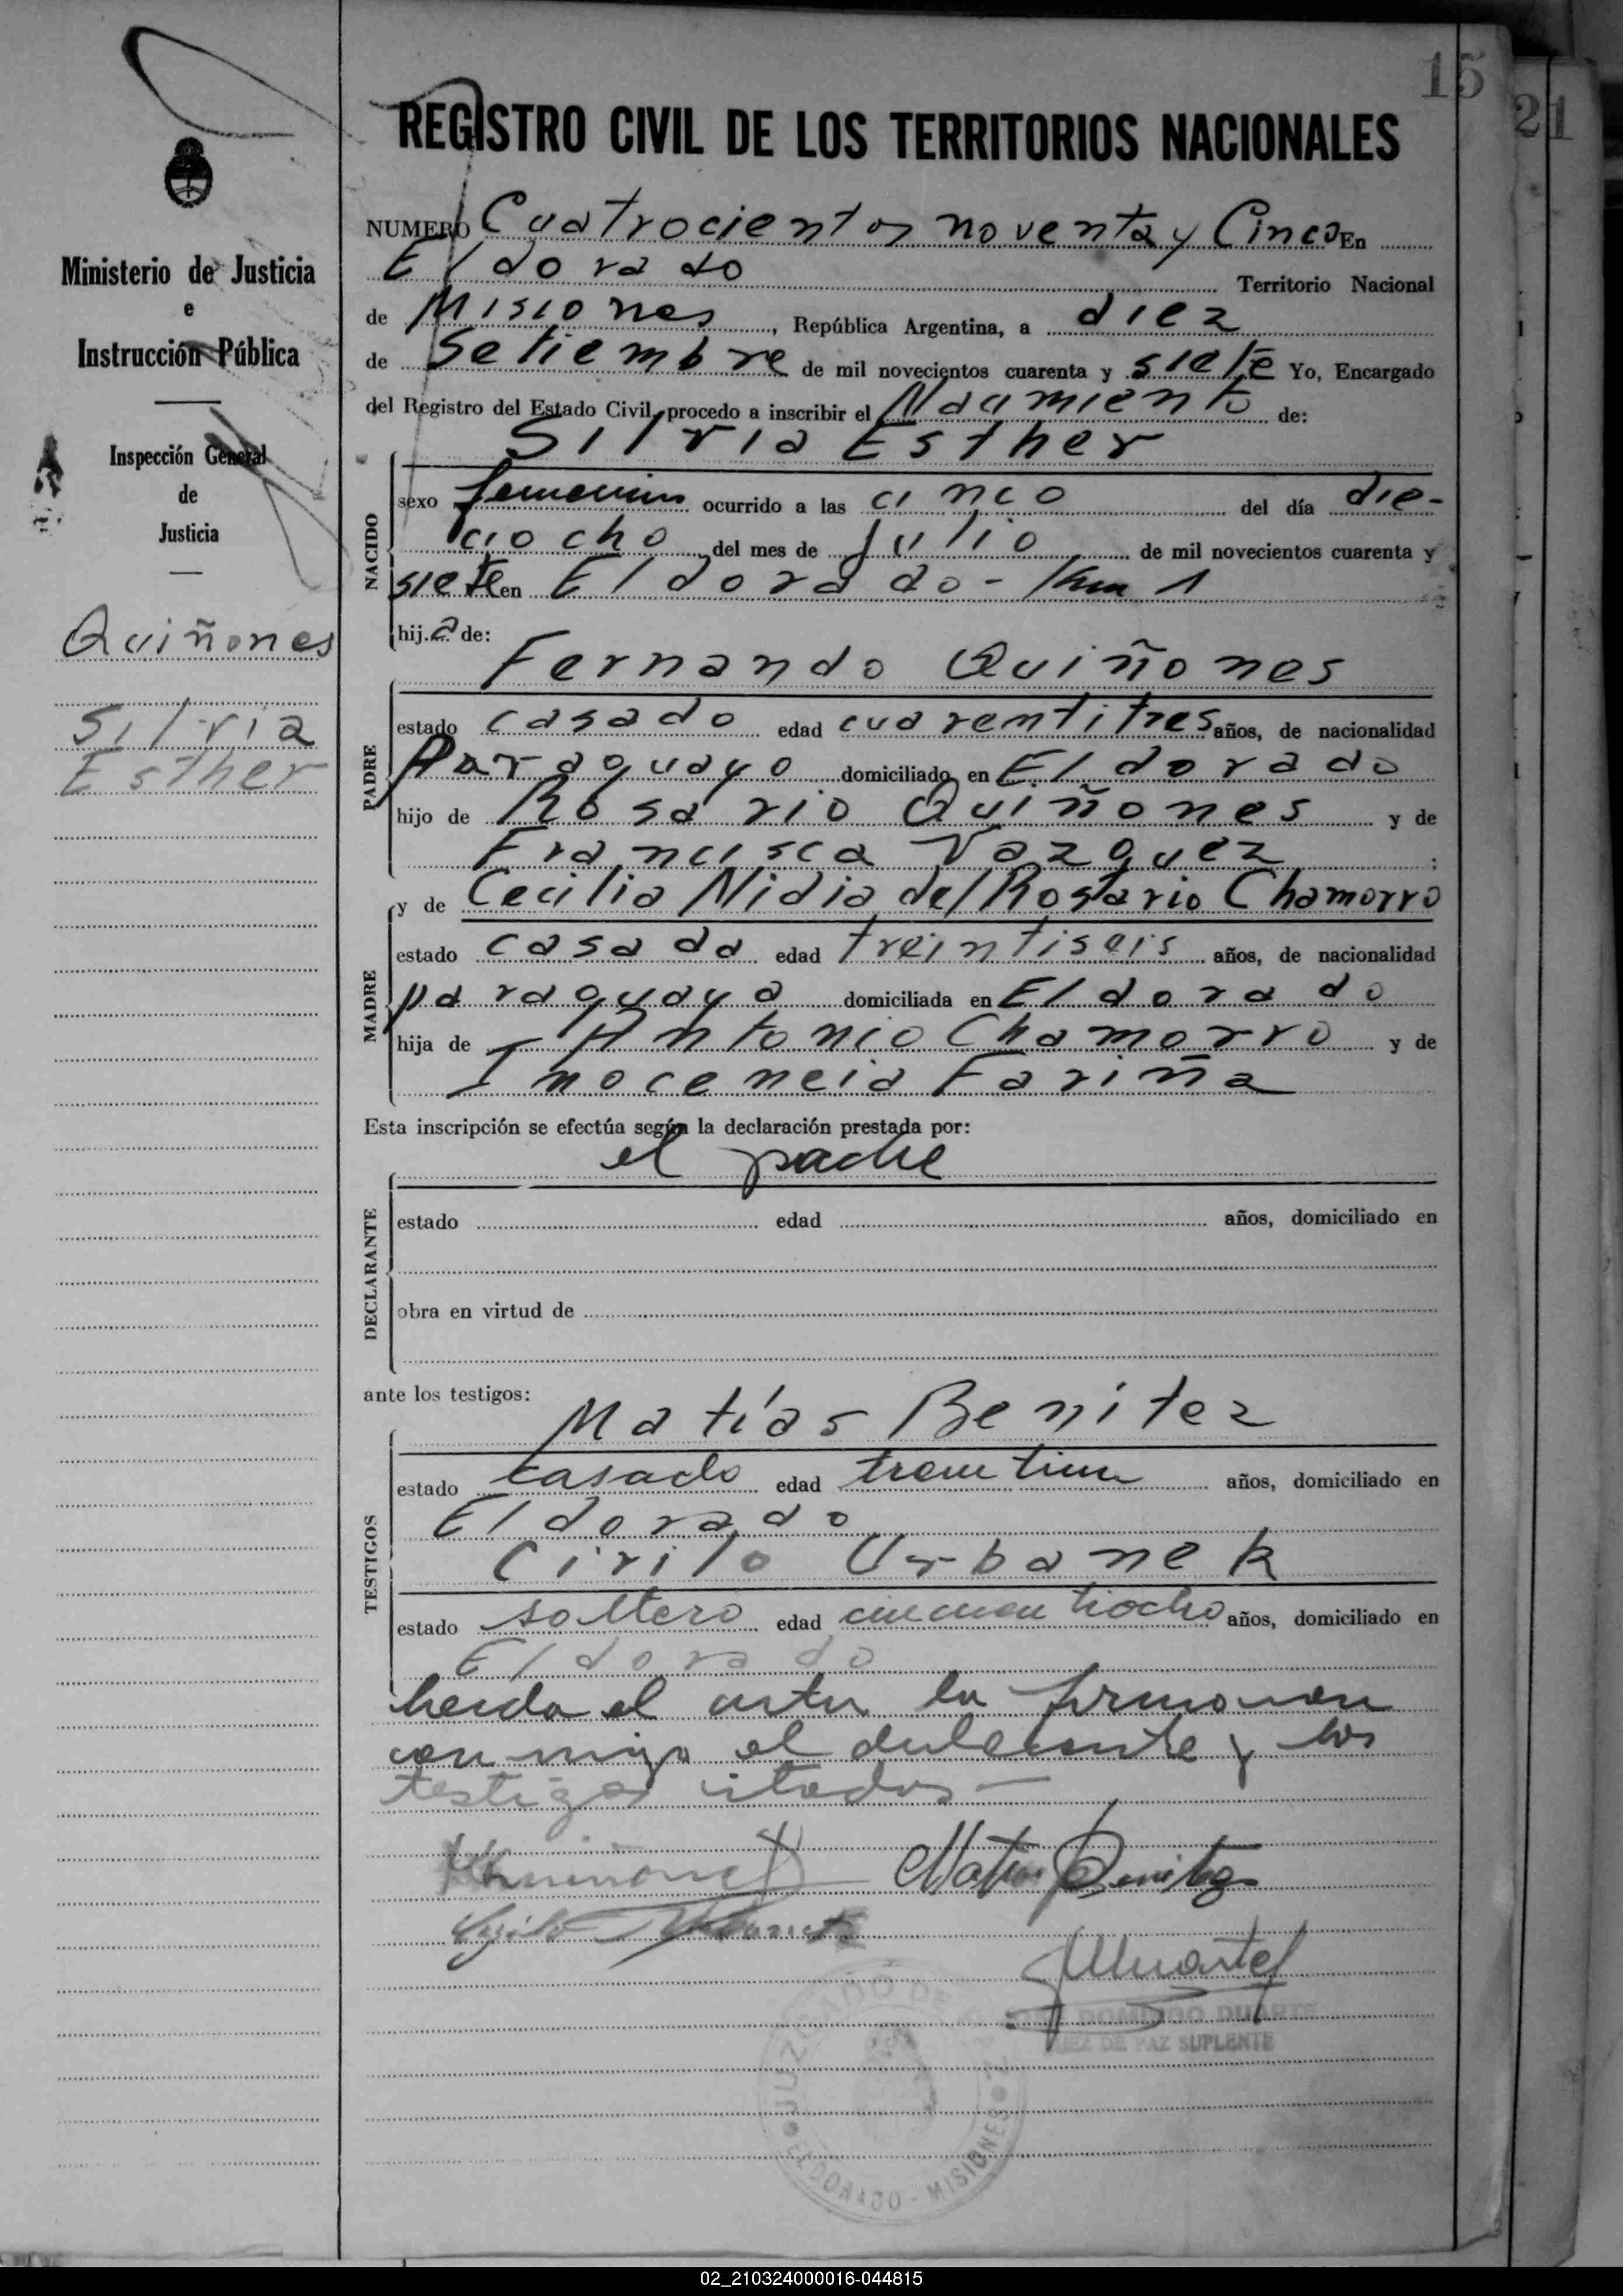 15
21
REGISTRO CIVIL DE LOS TERRITORIOS NACIONALES
Ministerio de Justicia
e
Instrucción Pública
Inspección General
de
Justicia
Quiñones
Silvia
Esther
NUMERO Cuatrocientos noventa y Cinco En
Eldorado Territorio Nacional
de Misiones, República Argentina, a diez
de Setiembre de mil novecientos cuarenta y siete Yo, Encargado
del Registro del Estado Civil, procedo a inscribir el de:
Silvia Esther
NACIDO
sexo femenino ocurrido a las cinco del día die-
ciocho del mes de Julio de mil novecientos cuarenta y
siete en Eldorado - Km 1
hija de:
Fernando Quiñones
PADRE
estado casado edad cuarentitres años, de nacionalidad
Paraguayo domiciliado en Eldorado
hijo de Rosario Quiñones y de
Francisca Vazquez ;
y de Cecilia Nidia del Rosario Chamorro
MADRE
estado casada edad treintiseis años, de nacionalidad
paraguaya domiciliada en Eldorado
hija de Antonio Chamorro y de
Inocencia Fariña
Esta inscripción se efectúa según la declaración prestada por:
el padre
DECLARANTE
estado edad años, domiciliado en
obra en virtud de
ante los testigos:
Matías Benitez
TESTIGOS
estado casado edad años, domiciliado en
Eldorado
Cirilo Urbanek
estado soltero edad años, domiciliado en
Eldorado
Leida el acta la firmaron
conmigo el declarante y los
testigos citados —
Matias Benitez
DOMINGO DUARTE
JUEZ DE PAZ SUPLENTE
JUZGADO DE
ELDORADO - MISIONES
02_210324000016-044815